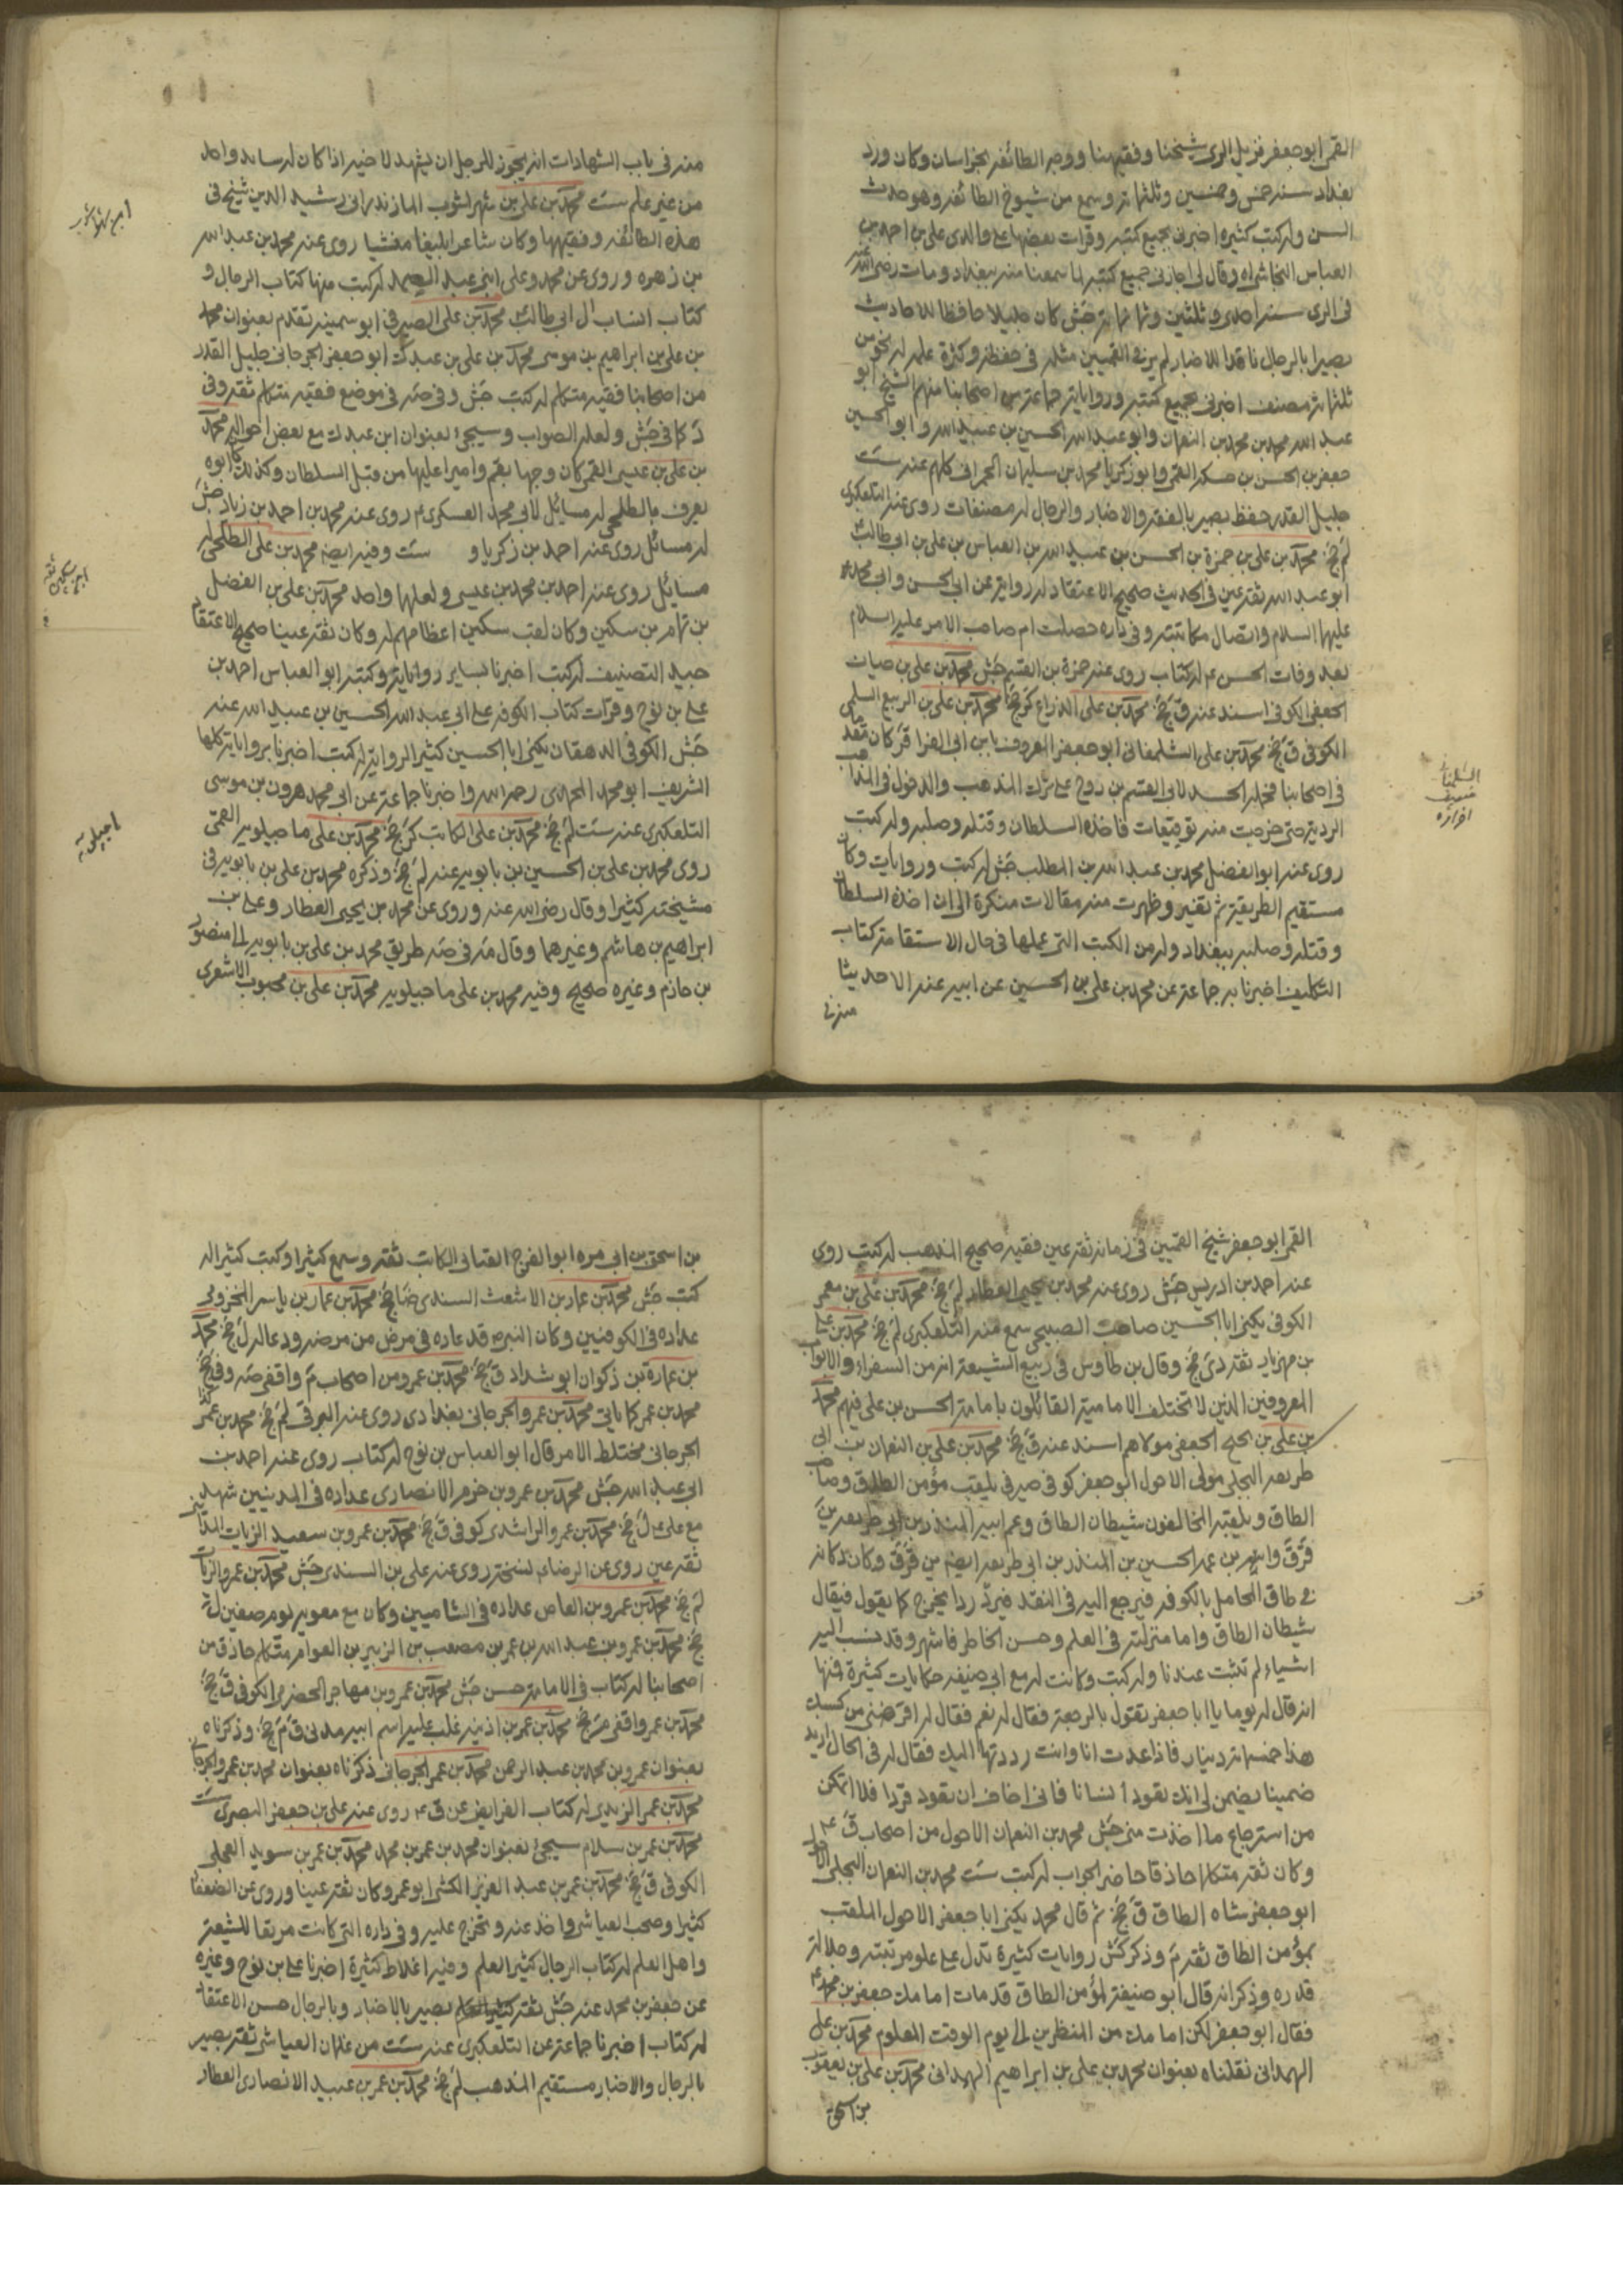 القمى ابو جعفر نزيل الرى شيخنا وفقيهنا ووجه الطائفه بخراسان وكان ورد
بغداد سنه خمس وخمسين وثلثمائه وسمع من شيوخ الطائفه وهو حدث
السن وله كتب كثيره اخبرنى بجميع كتبه وقرات بعضها على والدى على بن احمد بن
العباس النجاشى اه وقال لى اجازنى جميع كتبه لما سمعنا منه ببغداد ومات رضى الله عنه
فى الرى سنه احدى وثلثين وثلثمائه جش كان جليلا حافظا للاحاديث
بصيرا بالرجال ناقدا للاخبار لم ير فى القميين مثله فى حفظه وكثرة علمه له نحو من
ثلثمائه مصنف اخبرنى بجميع كتبه ورواياته جماعه من اصحابنا منهم الشيخ ابو
عبد الله محمد بن محمد بن النعمان وابو عبد الله الحسين بن عبيد الله وابو الحسين
جعفر بن الحسن بن حسكه القمى وابو زكريا محمد بن سليمان الحمرانى كلهم عنه ست
جليل القدر حفظه بصير بالفقه والاخبار والرجال له مصنفات روى عنه التلعكبرى
لم جخ محمد بن على بن حمزة بن الحسن بن عبيد الله بن العباس بن على بن ابى طالب ع
ابو عبد الله ثقه عين فى الحديث صحيح الاعتقاد له روايه عن ابى الحسن وابى محمد
عليهما السلام واتصال مكاتبته وفى داره حصلت ام صاحب الامر عليه السلام
بعد وفات الحسن ع له كتاب روى عنه حمزة بن القسم جش محمد بن على بن حيان
الجعفى الكوفى اسند عنه ق جخ محمد بن على الذراع كر جخ محمد بن على بن الربيع السلمى
الكوفى ق جخ محمد بن على الشلمغانى ابو جعفر المعروف بابن ابى العزاقر كان متقدما
فى اصحابنا فحمله الحسد لابى القسم بن روح على ترك المذهب والدخول فى المذاهب
الرديه حتى خرجت منه توقيعات فاخذه السلطان وقتله وصلبه وله كتب
روى عنه ابو الفضل محمد بن عبد الله بن المطلب جش له كتب وروايات وكان
مستقيم الطريقه ثم تغير وظهرت منه مقالات منكرة الى ان اخذه السلطان
وقتله وصلبه ببغداد وله من الكتب التى عملها فى حال الاستقامه كتاب
التكليف اخبرنا به جماعه عن محمد بن على بن الحسين عن ابيه عنه الا حديثا
منه فى
الشلمغانى
ضعيف
منه فى باب الشهادات انه يجوز للرجل ان يشهد لاخيه اذا كان له شاهد واحد
من غير علم ست محمد بن على بن شهراشوب المازندرانى رشيد الدين شيخ فى
هذه الطائفه وفقيهها وكان شاعرا بليغا منشيا روى عنه محمد بن عبد الله
بن زهره وروى عن محمد وعلى ابنى عبد الصمد له كتب منها كتاب الرجال و
كتاب انساب ال ابى طالب محمد بن على الصيرفى ابو سمينه تقدم بعنوان محمد
بن على بن ابراهيم بن موسى محمد بن على بن عبدك ابو جعفر الجرجانى جليل القدر
من اصحابنا فقيه متكلم له كتب جش وفى صه فى موضع فقيه متكلم ثقه وفى
د كما فى جش ولعله الصواب وسيجئ بعنوان ابن عبدك مع بعض احواله محمد
بن على بن عيسى القمى كان وجها بقم واميرا عليها من قبل السلطان وكذلك كان ابوه
يعرف بالطلحى له مسائل لابى محمد العسكرى ع روى عنه محمد بن احمد بن زياد جش
له مسائل روى عنه احمد بن ذكريا و ست وفيه ايضا محمد بن على الطلحى له
مسائل روى عنه احمد بن محمد بن عيسى ولعلهما واحد محمد بن على بن الفضل
بن تمام بن سكين وكان لقب سكين اعظامهم له وكان ثقه عينا صحيح الاعتقاد
جيد التصنيف له كتب اخبرنا بساير رواياته وكتبه ابو العباس احمد بن
على بن نوح وقرات كتاب الكوفه على ابى عبد الله الحسين بن عبيد الله عنه
جش الكوفى الدهقان يكنى ابا الحسين كثير الروايه له كتب اخبرنا برواياته كلها
الشريف ابو محمد المحمدى رحمه الله واخبرنا جماعه عن ابى محمد هرون بن موسى
التلعكبرى عنه ست لم جخ محمد بن على الكاتب كر جخ محمد بن على ماجيلويه القمى
روى محمد بن على بن الحسين بن بابويه عنه لم جخ وذكره محمد بن على بن بابويه فى
مشيخته كثيرا وقال رضى الله عنه وروى عن محمد بن يحيى العطار وعلى بن
ابراهيم بن هاشم وغيرهما وقال مه فى صه طريق محمد بن على بن بابويه الى منصور
بن حازم وغيره صحيح وفيه محمد بن على ماجيلويه محمد بن على بن محبوب الاشعرى
ابن شهراشوب
ابن سكين ثقه
ماجيلويه
القمى ابو جعفر شيخ القميين فى زمانه ثقه عين فقيه صحيح المذهب له كتب روى
عنه احمد بن ادريس جش روى عنه محمد بن يحيى العطار لم جخ محمد بن على بن معمر
الكوفى يكنى ابا الحسين صاحب الصبيحى سمع منه التلعكبرى لم جخ محمد بن على
بن مهزيار ثقه دى جخ وقال بن طاوس فى ربيع الشيعه انه من السفراء والابواب
المعروفين الذين لا تختلف الاماميه القائلون بامامه الحسن بن على فيهم محمد
بن على بن الجعفى مولاهم اسند عنه ق جخ محمد بن على بن النعمان بن ابى
طريفه البجلى مولى الاحول ابو جعفر كوفى صيرفى يلقب مؤمن الطاق وصاحب
الطاق ويلقبه المخالفون شيطان الطاق وعم ابيه المنذر بن ابى طريفه ين
قر ق وابن عمه الحسين بن المنذر بن ابى طريفه ايضا ين قر ق وكان دكانه
فى طاق المحامل بالكوفه فيرجع اليه فى النقد فيرد ردا يخرج كما يقول فيقال
شيطان الطاق واما منزلته فى العلم وحسن الخاطر فاشهر وقد نسب اليه
اشياء لم تثبت عندنا وله كتب وكانت له مع ابى حنيفه حكايات كثيرة فمنها
انه قال له يوما يا ابا جعفر تقول بالرجعه فقال له نعم فقال له اقرضنى من كيسك
هذا خمسمائه دينار فاذا عدت انا وانت رددتها اليك فقال له فى الحال اريد
ضمينا يضمن لى انك تعود انسانا فانى اخاف ان تعود قردا فلا اتمكن
من استرجاع ما اخذت منى جش محمد بن النعمان الاحول من اصحاب ق ع
وكان ثقه متكلما حاذقا حاضر الجواب له كتب ست محمد بن النعمان البجلى الاحول
ابو جعفر شاه الطاق ق جخ ثم قال محمد يكنى ابا جعفر الاحول الملقب
بمؤمن الطاق ثقه م وذكر كش روايات كثيرة تدل على علو مرتبته وجلاله
قدره وذكر انه قال ابو حنيفه لمؤمن الطاق قد مات امامك جعفر بن محمد ع
فقال ابو جعفر لكن امامك من المنظرين الى يوم الوقت المعلوم محمد بن على
الهمدانى نقلناه بعنوان محمد بن على بن ابراهيم الهمدانى محمد بن على بن يعقوب
بن اسحق
بن اسحق بن ابى قره ابو الفرج القنانى الكاتب ثقه وسمع كثيرا وكتب كثيرا له
كتب جش محمد بن عمار بن الاشعث السندى ضا جخ محمد بن عمار بن ياسر المخزومى
عداده فى الكوفيين وكان النبى ص قد عاده فى مرض من مرضه ودعا له ل جخ محمد
بن عمارة بن ذكوان ابو شداد ق جخ محمد بن عمرو من اصحاب م واقفى صه وفى جخ
محمد بن عمر كما ياتى محمد بن عمرو الجرجانى بغدادى روى عنه البرقى لم جخ محمد بن عمر
الجرجانى مختلط الامر قال ابو العباس بن نوح له كتاب روى عنه احمد بن
ابى عبد الله جش محمد بن عمرو بن حزم الانصارى عداده فى المدنيين شهد
مع على ع ل جخ محمد بن عمرو الراشدى كوفى ق جخ محمد بن عمرو بن سعيد الزيات المداينى
ثقه عين روى عن الرضاء نسخته روى عنه على بن السندى جش محمد بن عمرو الزيات
لم جخ محمد بن عمرو بن العاص عداده فى الشاميين وكان مع معويه يوم صفين ل
جخ محمد بن عمرو بن عبد الله بن عمر بن مصعب بن الزبير بن العوام متكلم حاذق من
اصحابنا له كتاب فى الامامه حسن جش محمد بن عمرو بن مهاجر الحضرمى الكوفى ق جخ
محمد بن عمر واقفى م جخ محمد بن عمر بن اذينه غلب عليه اسم ابيه مدنى ق م جخ وذكرناه
بعنوان عمر بن محمد بن عبد الرحمن محمد بن عمر الجرجانى ذكرناه بعنوان محمد بن عمرو الجرجانى
محمد بن عمر الزيدى له كتاب الفرايض عن ق ع روى عنه على بن جعفر البصرى ست
محمد بن عمر بن سلام سيجئ بعنوان محمد بن عمر بن محمد محمد بن عمر بن سويد العجلى
الكوفى ق جخ محمد بن عمر بن عبد العزيز الكشى ابو عمرو كان ثقه عينا وروى عن الضعفاء
كثيرا وصحب العياشى واخذ عنه وتخرج عليه وفى داره التى كانت مرتعا للشيعه
واهل العلم له كتاب الرجال كثير العلم وفيه اغلاط كثيرة اخبرنا على بن نوح وغيره
عن جعفر بن محمد عنه جش ثقه بصير بالاخبار وبالرجال حسن الاعتقاد
له كتاب اخبرنا جماعه عن التلعكبرى عنه ست من غلمان العياشى ثقه بصير
بالرجال والاخبار مستقيم المذهب لم جخ محمد بن عمر بن عبيد الانصارى العطار